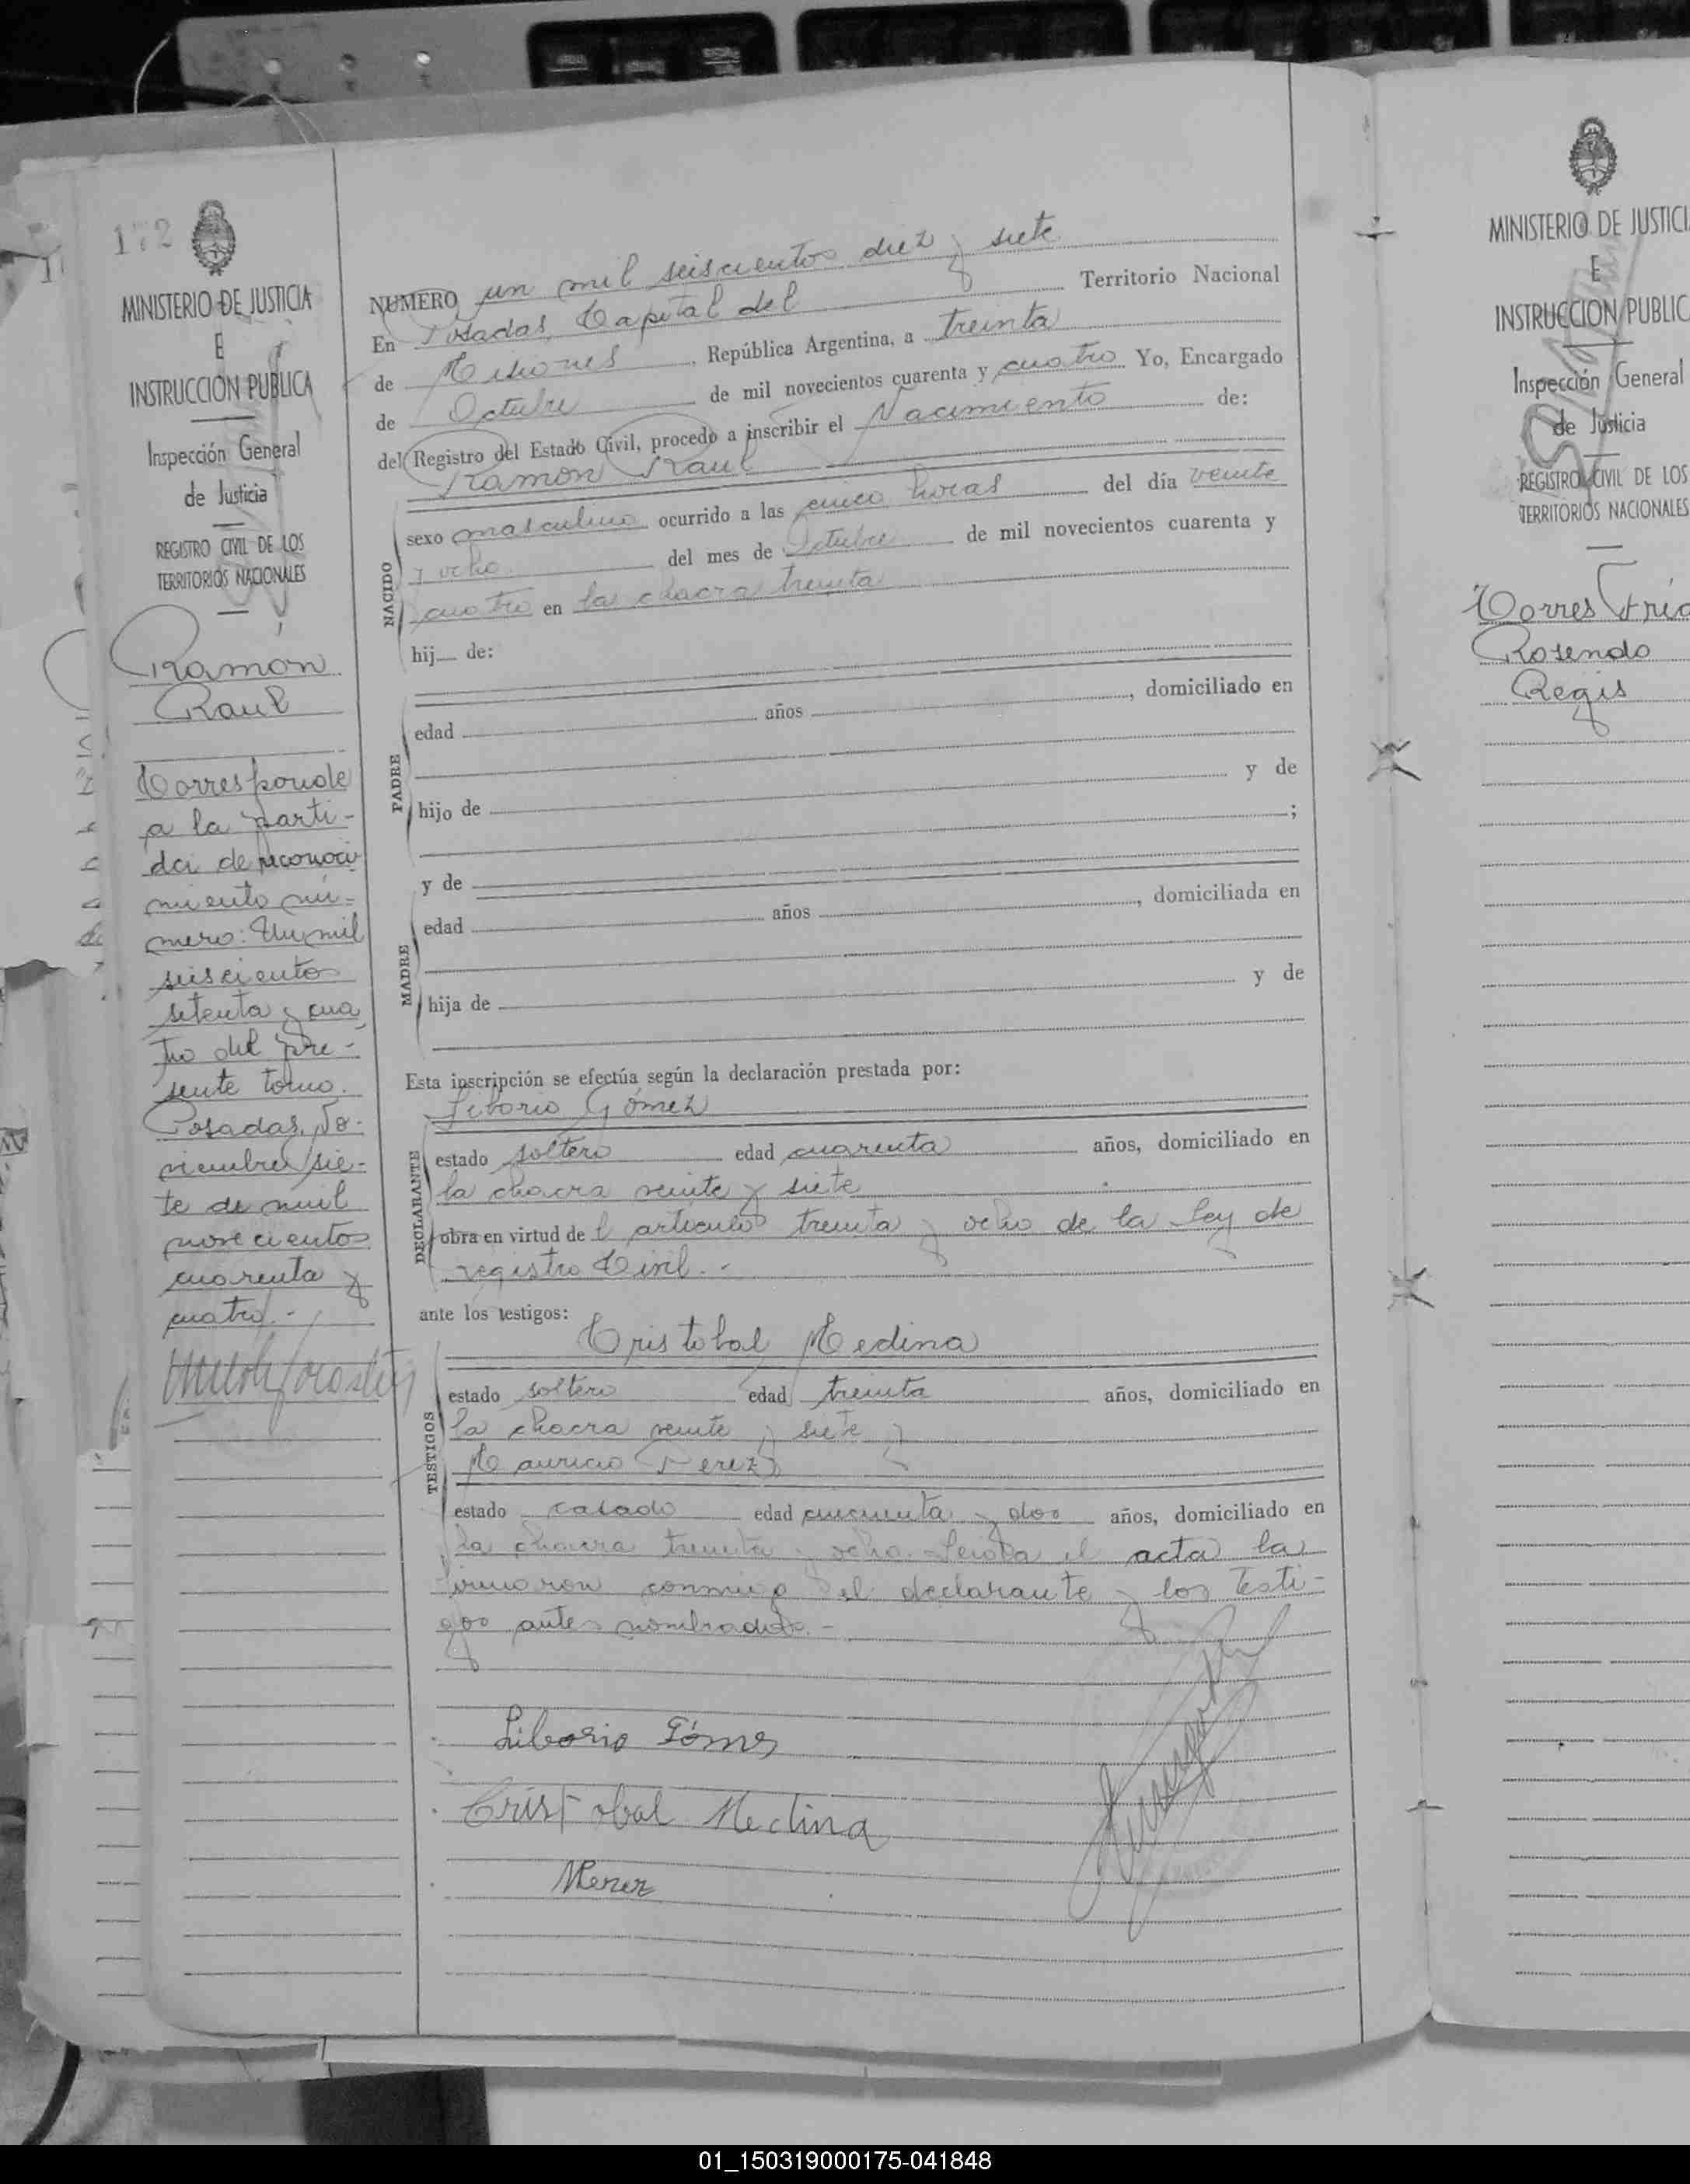 172
MINISTERIO DE JUSTICIA
E
INSTRUCCION PUBLICA
Inspección General
de Justicia
REGISTRO CIVIL DE LOS
TERRITORIOS NACIONALES
Ramón
Raul
Corresponde
a la parti-
da de reconoci
miento nú-
mero: Un mil
seiscientos
setenta y cua
tro del pre-
sente tomo.
Posadas, No-
viembre sie-
te de mil
novecientos
cuarenta y
cuatro.-
NUMERO un mil seiscientos diez y siete
En Posadas, Capital del Territorio Nacional
de Misiones, República Argentina, a treinta
de Octubre de mil novecientos cuarenta y cuatro Yo, Encargado
del Registro del Estado Civil, procedo a inscribir el Nacimiento de:
Ramón Raul
NACIDO
sexo masculino ocurrido a las cinco horas del día veinte
y ocho del mes de Octubre de mil novecientos cuarenta y
cuatro en la chacra treinta
hij de:
PADRE
edad años , domiciliado en
hijo de y de
;
y de
MADRE
edad años , domiciliada en
hija de y de
Esta inscripción se efectúa según la declaración prestada por:
Liborio Gómez
DECLARANTE
estado soltero edad cuarenta años, domiciliado en
la chacra veinte y siete
obra en virtud de l artículo treinta y ocho de la Ley de
registro Civil.-
ante los testigos:
Cristobal Medina
TESTIGOS
estado soltero edad treinta años, domiciliado en
la chacra veinte y siete y
Mauricio Perez
estado casado edad cincuenta y dos años, domiciliado en
la chacra treinta y ocho. Leida el acta la
firmaron conmigo el declarante y los testi-
gos antes nombrados.-
Liborio Gómes
Cristobal Medina
MPerez
MINISTERIO DE JUSTICI
E
INSTRUCCION PUBLIC
Inspección General
de Justicia
REGISTRO CIVIL DE LOS
TERRITORIOS NACIONALES
Torres
Rosendo
Regis
01_150319000175-041848